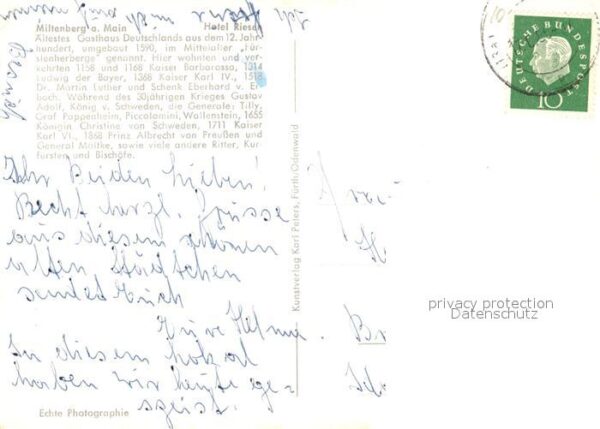 Miltenberg a. Main Hotel Riesen
Ältestes Gasthaus Deutschlands aus dem 12. Jahr-
hundert, umgebaut 1590, im Mittelalter „Für-
stenherberge" genannt. Hier wohnten und ver-
kehrten 1158 und 1168 Kaiser Barbarossa, 1314
Ludwig der Bayer, 1368 Kaiser Karl IV., 1518
Dr. Martin Luther und Schenk Eberhard v. Er-
bach. Während des 30jährigen Krieges Gustav
Adolf, König v. Schweden, die Generale: Tilly,
Graf Pappenheim, Piccolomini, Wallenstein, 1655
Königin Christine von Schweden, 1711 Kaiser
Karl VI., 1868 Prinz Albrecht von Preußen und
General Moltke, sowie viele andere Ritter, Kur-
fürsten und Bischöfe.
Ihr Beiden Lieben!
Recht herzl. Grüsse
aus diesem schönen
alten Städtchen
sendet Euch
Eure Helma.
In diesem hotel
haben wir heute ge-
speist.
Echte Photographie
Kunstverlag Karl Peters, Fürth/Odenwald
DEUTSCHE BUNDESPOST
10
privacy protection
Datenschutz